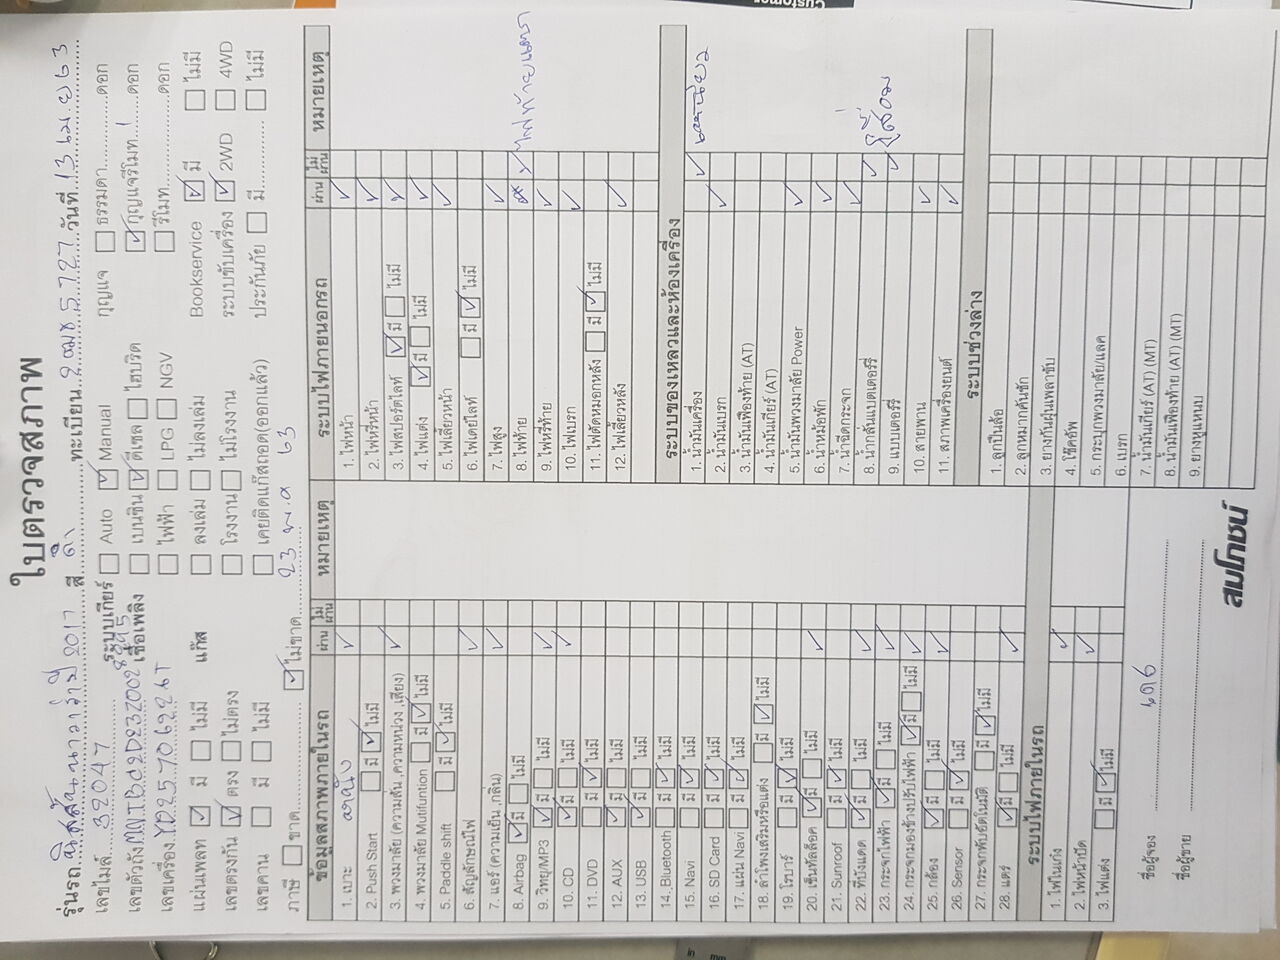 Customer
ใบตรวจสภาพ
รุ่นรถ นิสสัน นาวาร่า ปี 2017 สี ดำ ทะเบียน 2ฒช 5727 วันที่ 13 เม.ย 63
เลขไมล์ 32047 ระบบเกียร์ Auto Manual กุญแจ ธรรมดา ดอก
เลขตัวถัง เชื้อเพลิง เบนซิน ดีเซล ไฮบริด กุญแจรีโมท 1 ดอก
เลขเครื่อง ไฟฟ้า LPG NGV รีโมท ดอก
แผ่นเพลท มี ไม่มี แก๊ส ลงเล่ม ไม่ลงเล่ม Bookservice มี ไม่มี
เลขตรงกัน ตรง ไม่ตรง โรงงาน ไม่โรงงาน ระบบขับเครื่อง 2WD 4WD
เลขคาน มี ไม่มี เคยติดแก๊สถอด(ออกแล้ว) ประกันภัย มี ไม่มี
ภาษี ขาด ไม่ขาด 23 พ.ค 63
ข้อมูลสภาพภายในรถ ผ่าน ไม่ผ่าน หมายเหตุ
1. เบาะ
2. Push Start มี ไม่มี
3. พวงมาลัย (ความสั่น ,ความหน่วง ,เสียง)
4. พวงมาลัย Mutifuntion มี ไม่มี
5. Paddle shift มี ไม่มี
6. สัญลักษณ์ไฟ
7. แอร์ (ความเย็น ,กลิ่น)
8. Airbag มี ไม่มี
9. วิทยุ/MP3 มี ไม่มี
10. CD มี ไม่มี
11. DVD มี ไม่มี
12. AUX มี ไม่มี
13. USB มี ไม่มี
14. Bluetooth มี ไม่มี
15. Navi มี ไม่มี
16. SD Card มี ไม่มี
17. แผ่น Navi มี ไม่มี
18. ลำโพงเสริมหรือแต่ง มี ไม่มี
19. โรบาร์ มี ไม่มี
20. เซ็นทัลล็อค มี ไม่มี
21. Sunroof มี ไม่มี
22. ที่บังแดด มี ไม่มี
23. กระจกไฟฟ้า มี ไม่มี
24. กระจกมองข้างปรับไฟฟ้า มี ไม่มี
25. กล้อง มี ไม่มี
26. Sensor มี ไม่มี
27. กระจกพับอัตโนมัติ มี ไม่มี
28. แตร มี ไม่มี
ระบบไฟภายในรถ
1. ไฟในเก๋ง
2. ไฟหน้าปัด
3. ไฟแต่ง มี ไม่มี
ชื่อผู้จอง
ชื่อผู้ขาย
ระบบไฟภายนอกรถ ผ่าน ไม่ผ่าน หมายเหตุ
1. ไฟหน้า
2. ไฟหรี่หน้า
3. ไฟสปอร์ตไลท์ มี ไม่มี
4. ไฟแต่ง มี ไม่มี
5. ไฟเลี้ยวหน้า
6. ไฟเดย์ไลท์ มี ไม่มี
7. ไฟสูง
8. ไฟท้าย ไฟท้ายแตก
9. ไฟหรี่ท้าย
10. ไฟเบรก
11. ไฟตัดหมอกหลัง มี ไม่มี
12. ไฟเลี้ยวหลัง
ระบบของเหลวและห้องเครื่อง
1. น้ำมันเครื่อง
2. น้ำมันเบรก
3. น้ำมันเฟืองท้าย (AT)
4. น้ำมันเกียร์ (AT)
5. น้ำมันพวงมาลัย Power
6. น้ำหม้อพัก
7. น้ำฉีดกระจก
8. น้ำกลั่นแบตเตอร์รี่
9. แบตเตอร์รี่
10. สายพาน
11. สภาพเครื่องยนต์
ระบบช่วงล่าง
1. ลูกปืนล้อ
2. ลูกหมากคันชัก
3. ยางกันฝุ่นเพลาขับ
4. โช๊คอัพ
5. กระปุกพวงมาลัย/แลค
6. เบรก
7. น้ำมันเกียร์ (AT) (MT)
8. น้ำมันเฟืองท้าย (AT) (MT)
9. ยางหูแหนบ
สมโภชน์
in mm